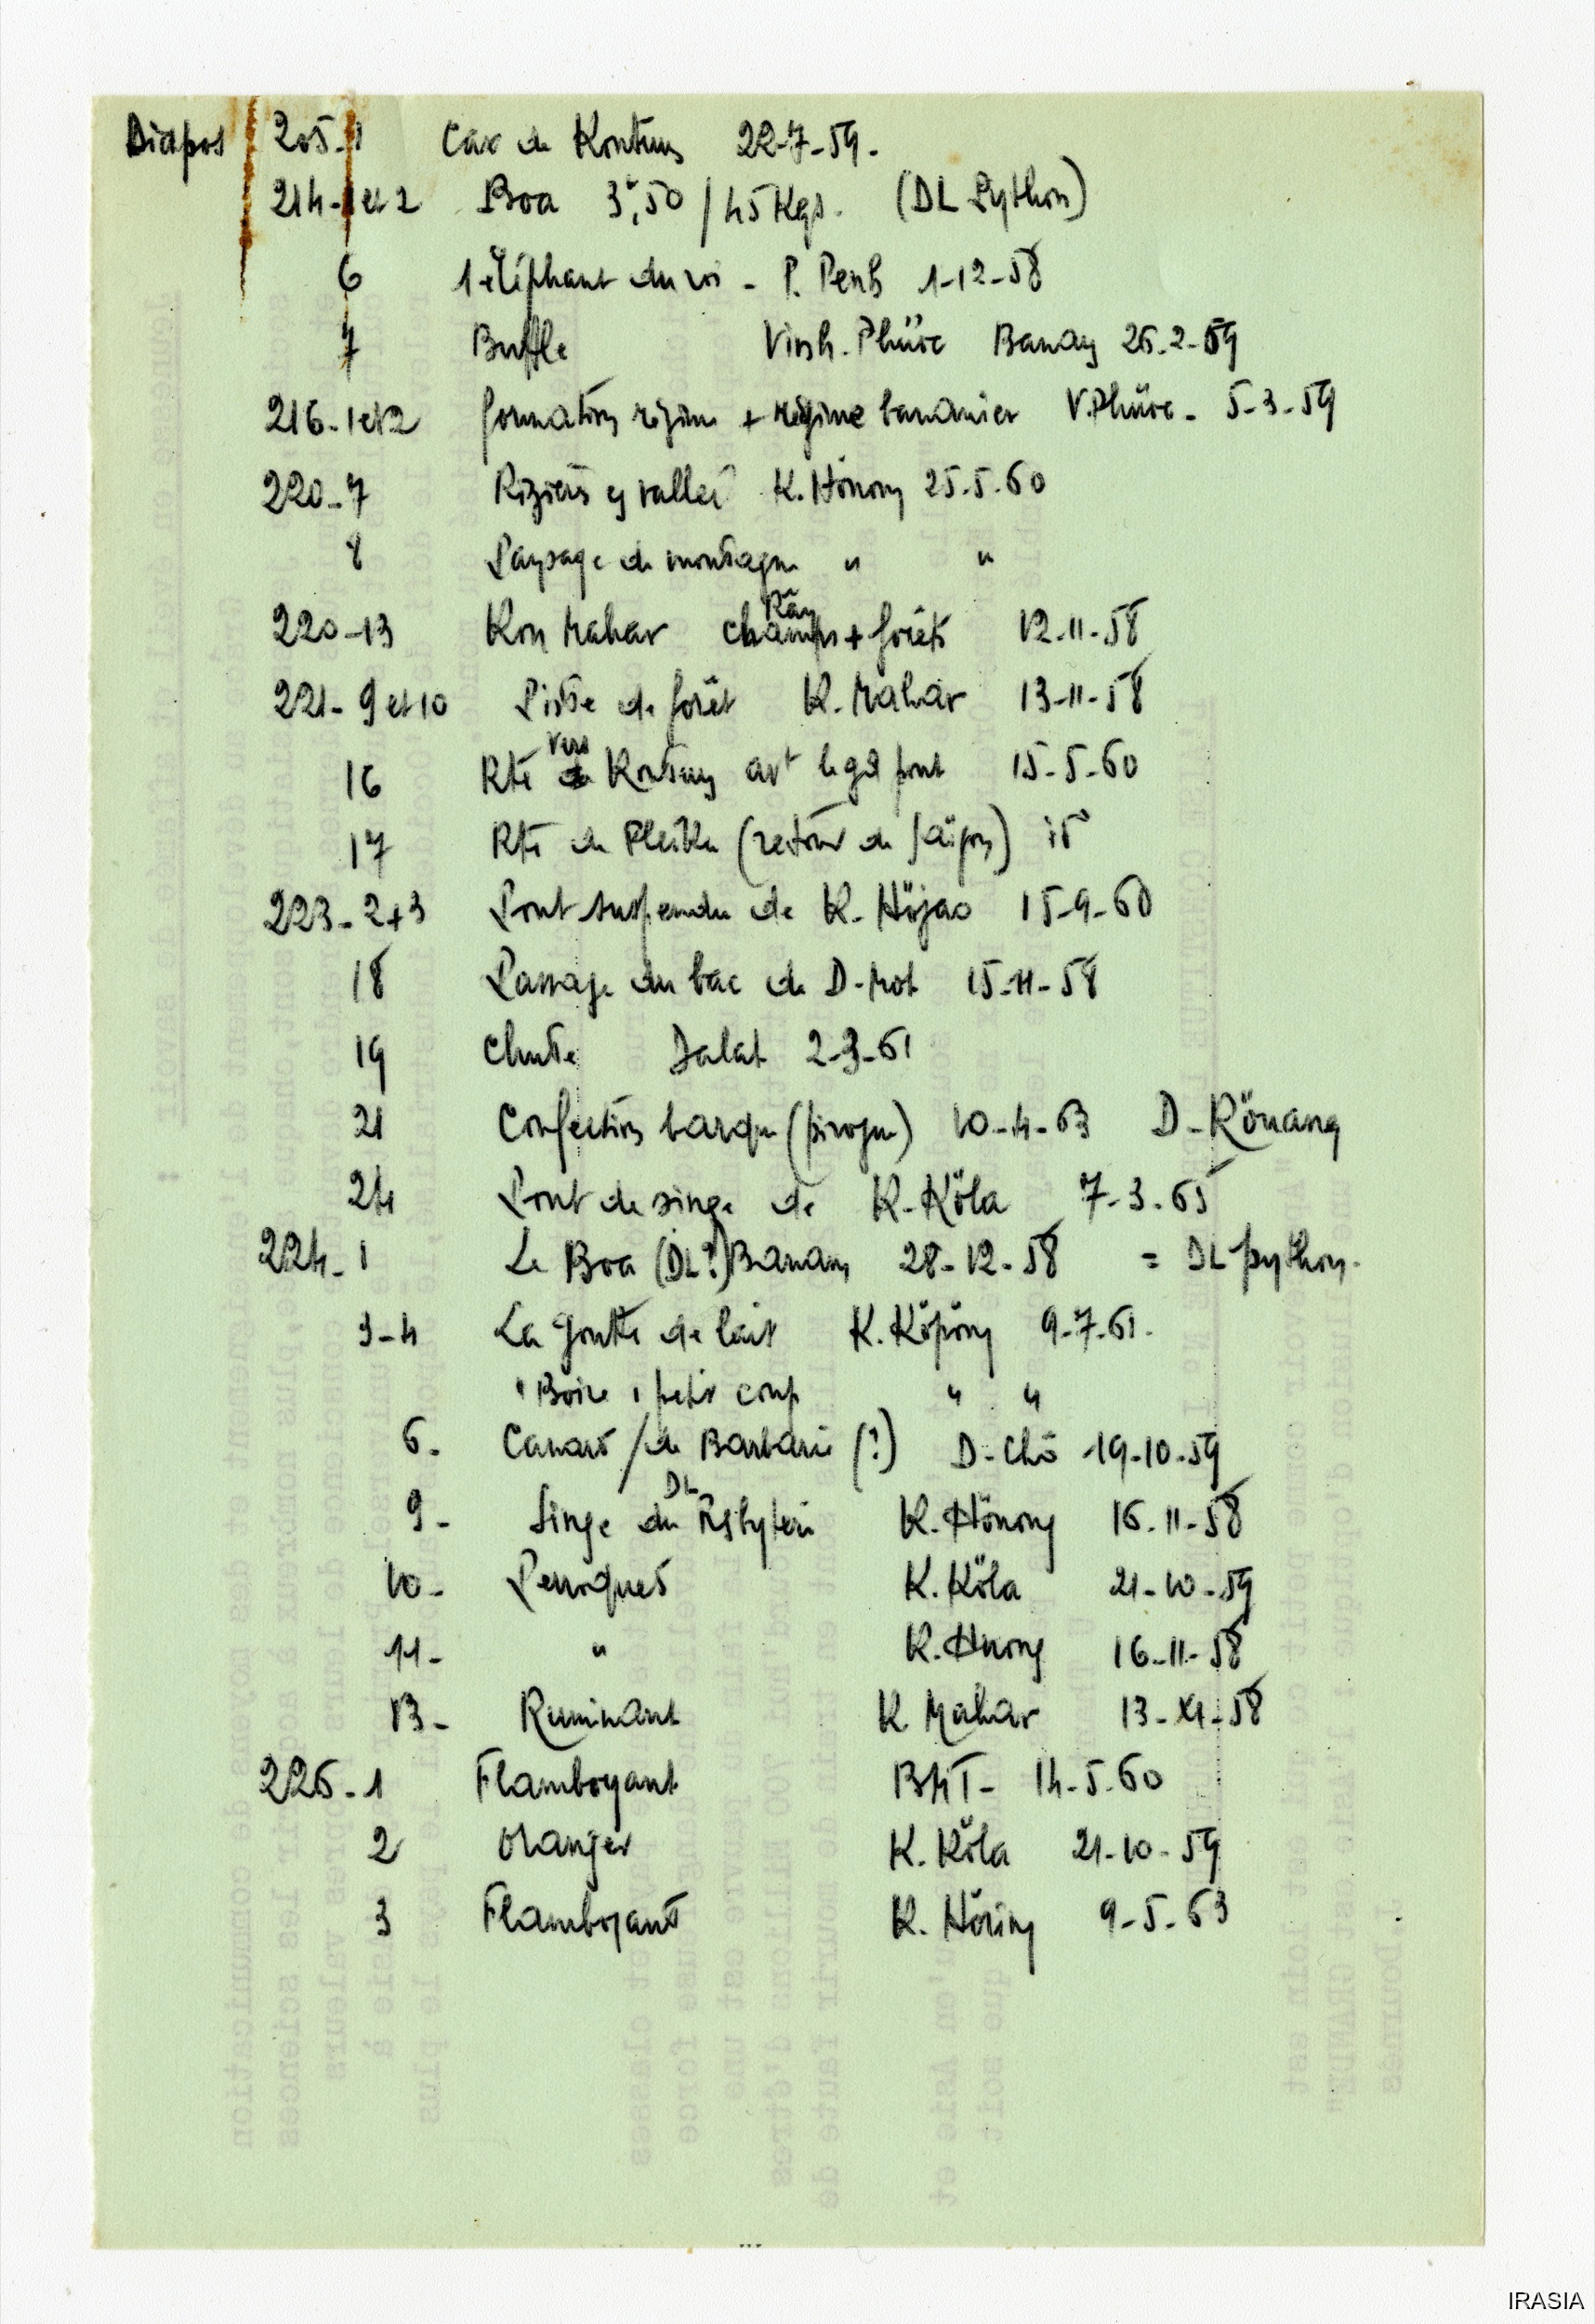 Diapos 205-1 Car de Kontum 22-7-59.
214-1 et 2 Boa 3,50 / 45 Kgs. (DL Python)
6 1 éléphant du roi - P. Penh 1-12-58
7 Buffle Vinh-Phüöc Banam 26-2-59
216-1 et 2 formation régime + régime bananier V.Phüöc- 5-3-59
220-7 Rizières en vallée K.Hönong 25.5.60
8 Paysage de montagne " "
220-13 Kon Mahar champs + forêts 12-11-58
Ray
221-9 et 10 Piste de forêt K. Mahar 13-11-58
16 Rte vers Kontum avt le gd pont 15-5-60
17 Rte de Pleiku (retour de Saïgon) id
223-2+3 Pont suspendu de K. Höjao 15-9-60
18 Passage du bac de D-Mot 15-11-58
19 Chute Dalat 2-3-61
21 Confection barque (pirogue) 10-4-63 D-Rönang
24 Pont de singe de K-Köla 7-3-65
224-1 Le Boa (DL?) Banam 28-12-58 = DL python.
3-4 La goutte de lait K.Köpöng 9-7-61.
"Boire 1 petit coup " "
6- Canard / de Barbarie (?) D-Chö 19-10-59
9- Singe du DL Presbytère K.Hönong 16-11-58
10- Perroquet K.Köla 21-10-59
11- " K.Hnong 16-11-58
13- Ruminant K. Mahar 13-XI-58
226-1 Flamboyant BMT- 14-5-60
2 Oranger K.Köla 21-10-59
3 Flamboyant K. Höring 9-5-63
IRASIA